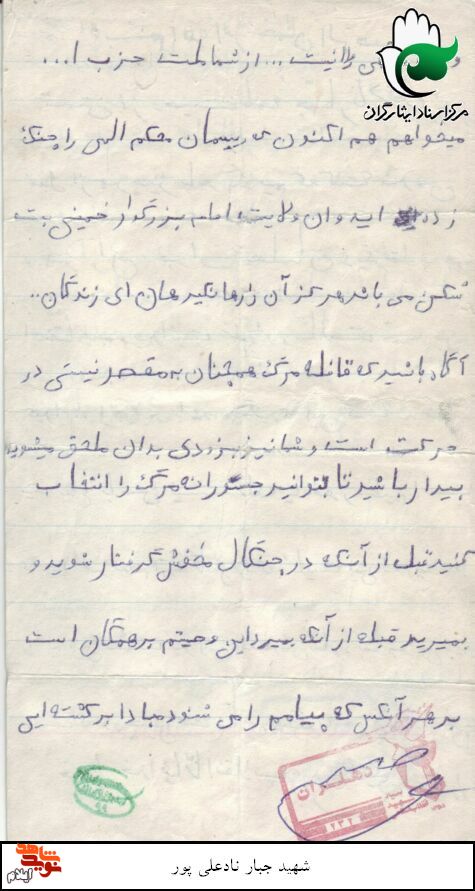 مرکز اسناد ایثارگران
نیست... از شما امت حزب ا...
میخواهم هم اکنون که ریسمان محکم الهی را چنگ
زده اید و آن ولایت امام بزرگوار خمینی بت
شکن می باشد هرگز آن را رها نگیرید هان ای زندگان..
آگاه باشید که قافله مرگ همچنان به مقصد نیستی در
حرکت است و شما نیز بزودی بدان ملحق میشوید
بیدار باشید تا بتوانید جسورانه مرگ را انتخاب
کنید قبل از آنکه در چنگال مخفش گرفتار شوید و
بمیرید قبل از آنکه بمیرد این وصیتم بر همگان است
بر هر آنکس که پیامم را می شنود مبادا برگشته ایی
دهلران
شهید جبار نادعلی پور
نوید شاهد
ایلام